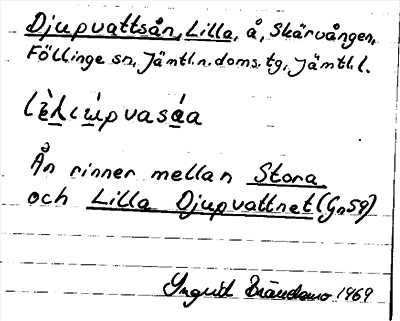 Djupvattsån, Lilla, å, Skärvången,
Föllinge sn, Jämtl.n.doms.tg, Jämtl.l.
Ån rinner mellan Stora
och Lilla Djupvattnet (Gn59)
Ingrid 1969